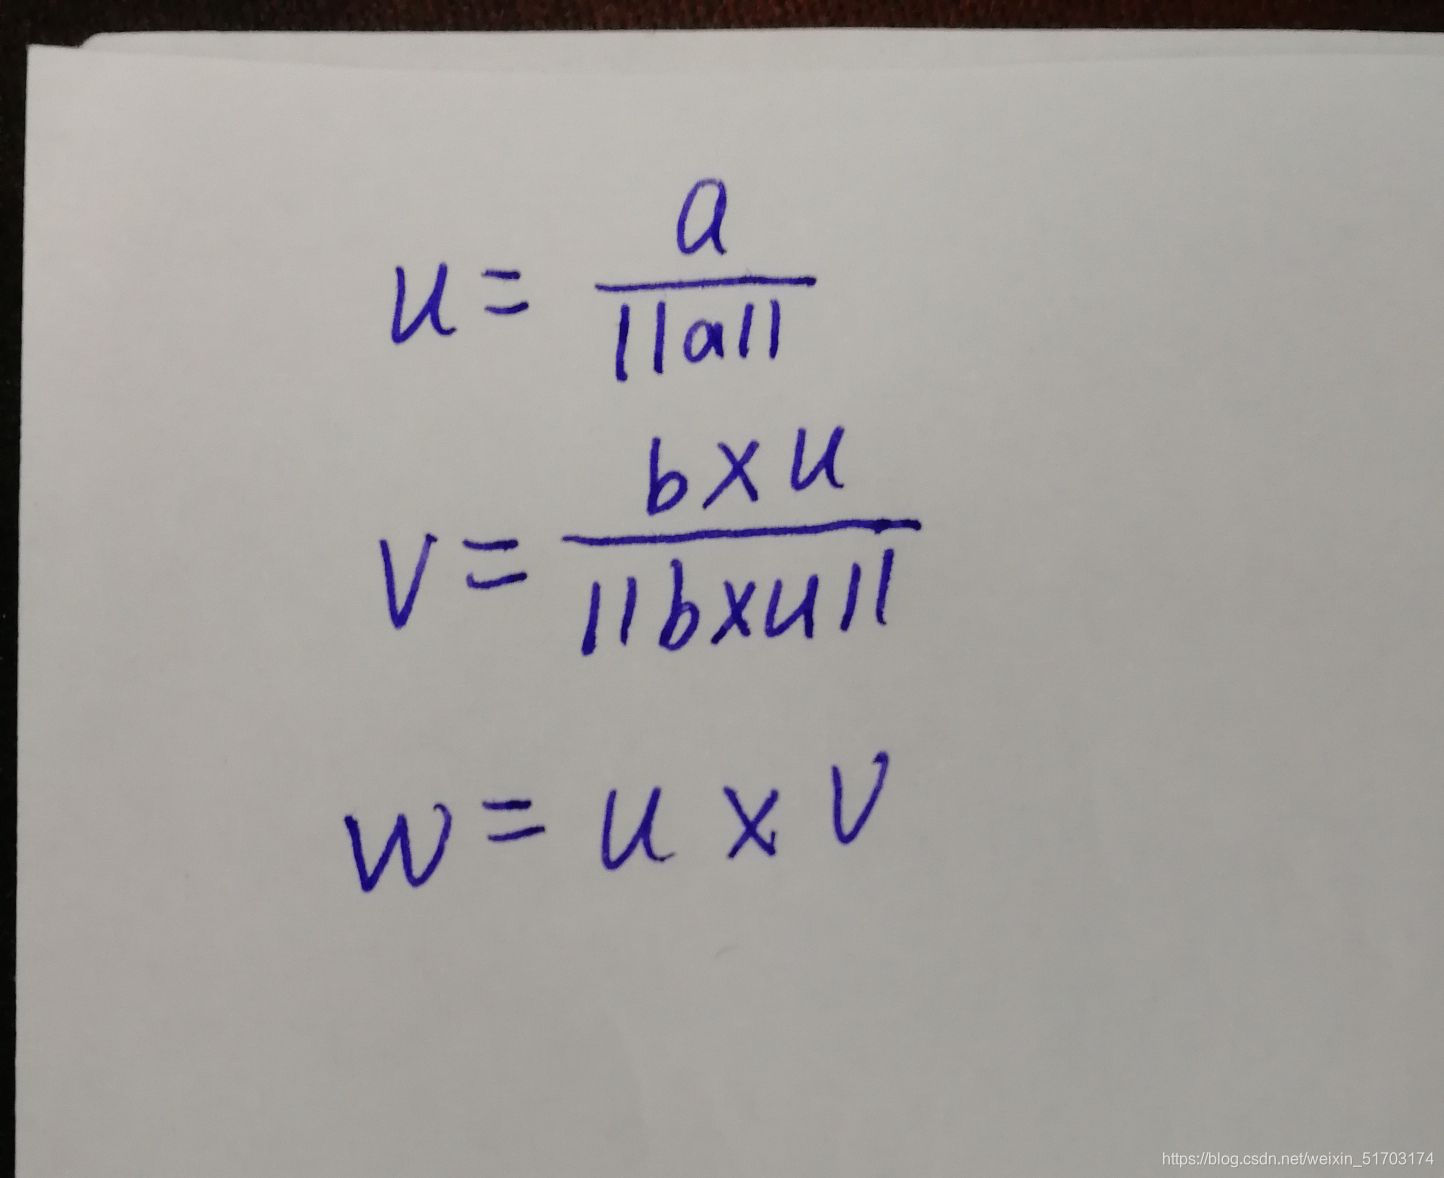 u = a / ||a||
v = b × u / ||b×u||
w = u × v
https://blog.csdn.net/weixin_51703174